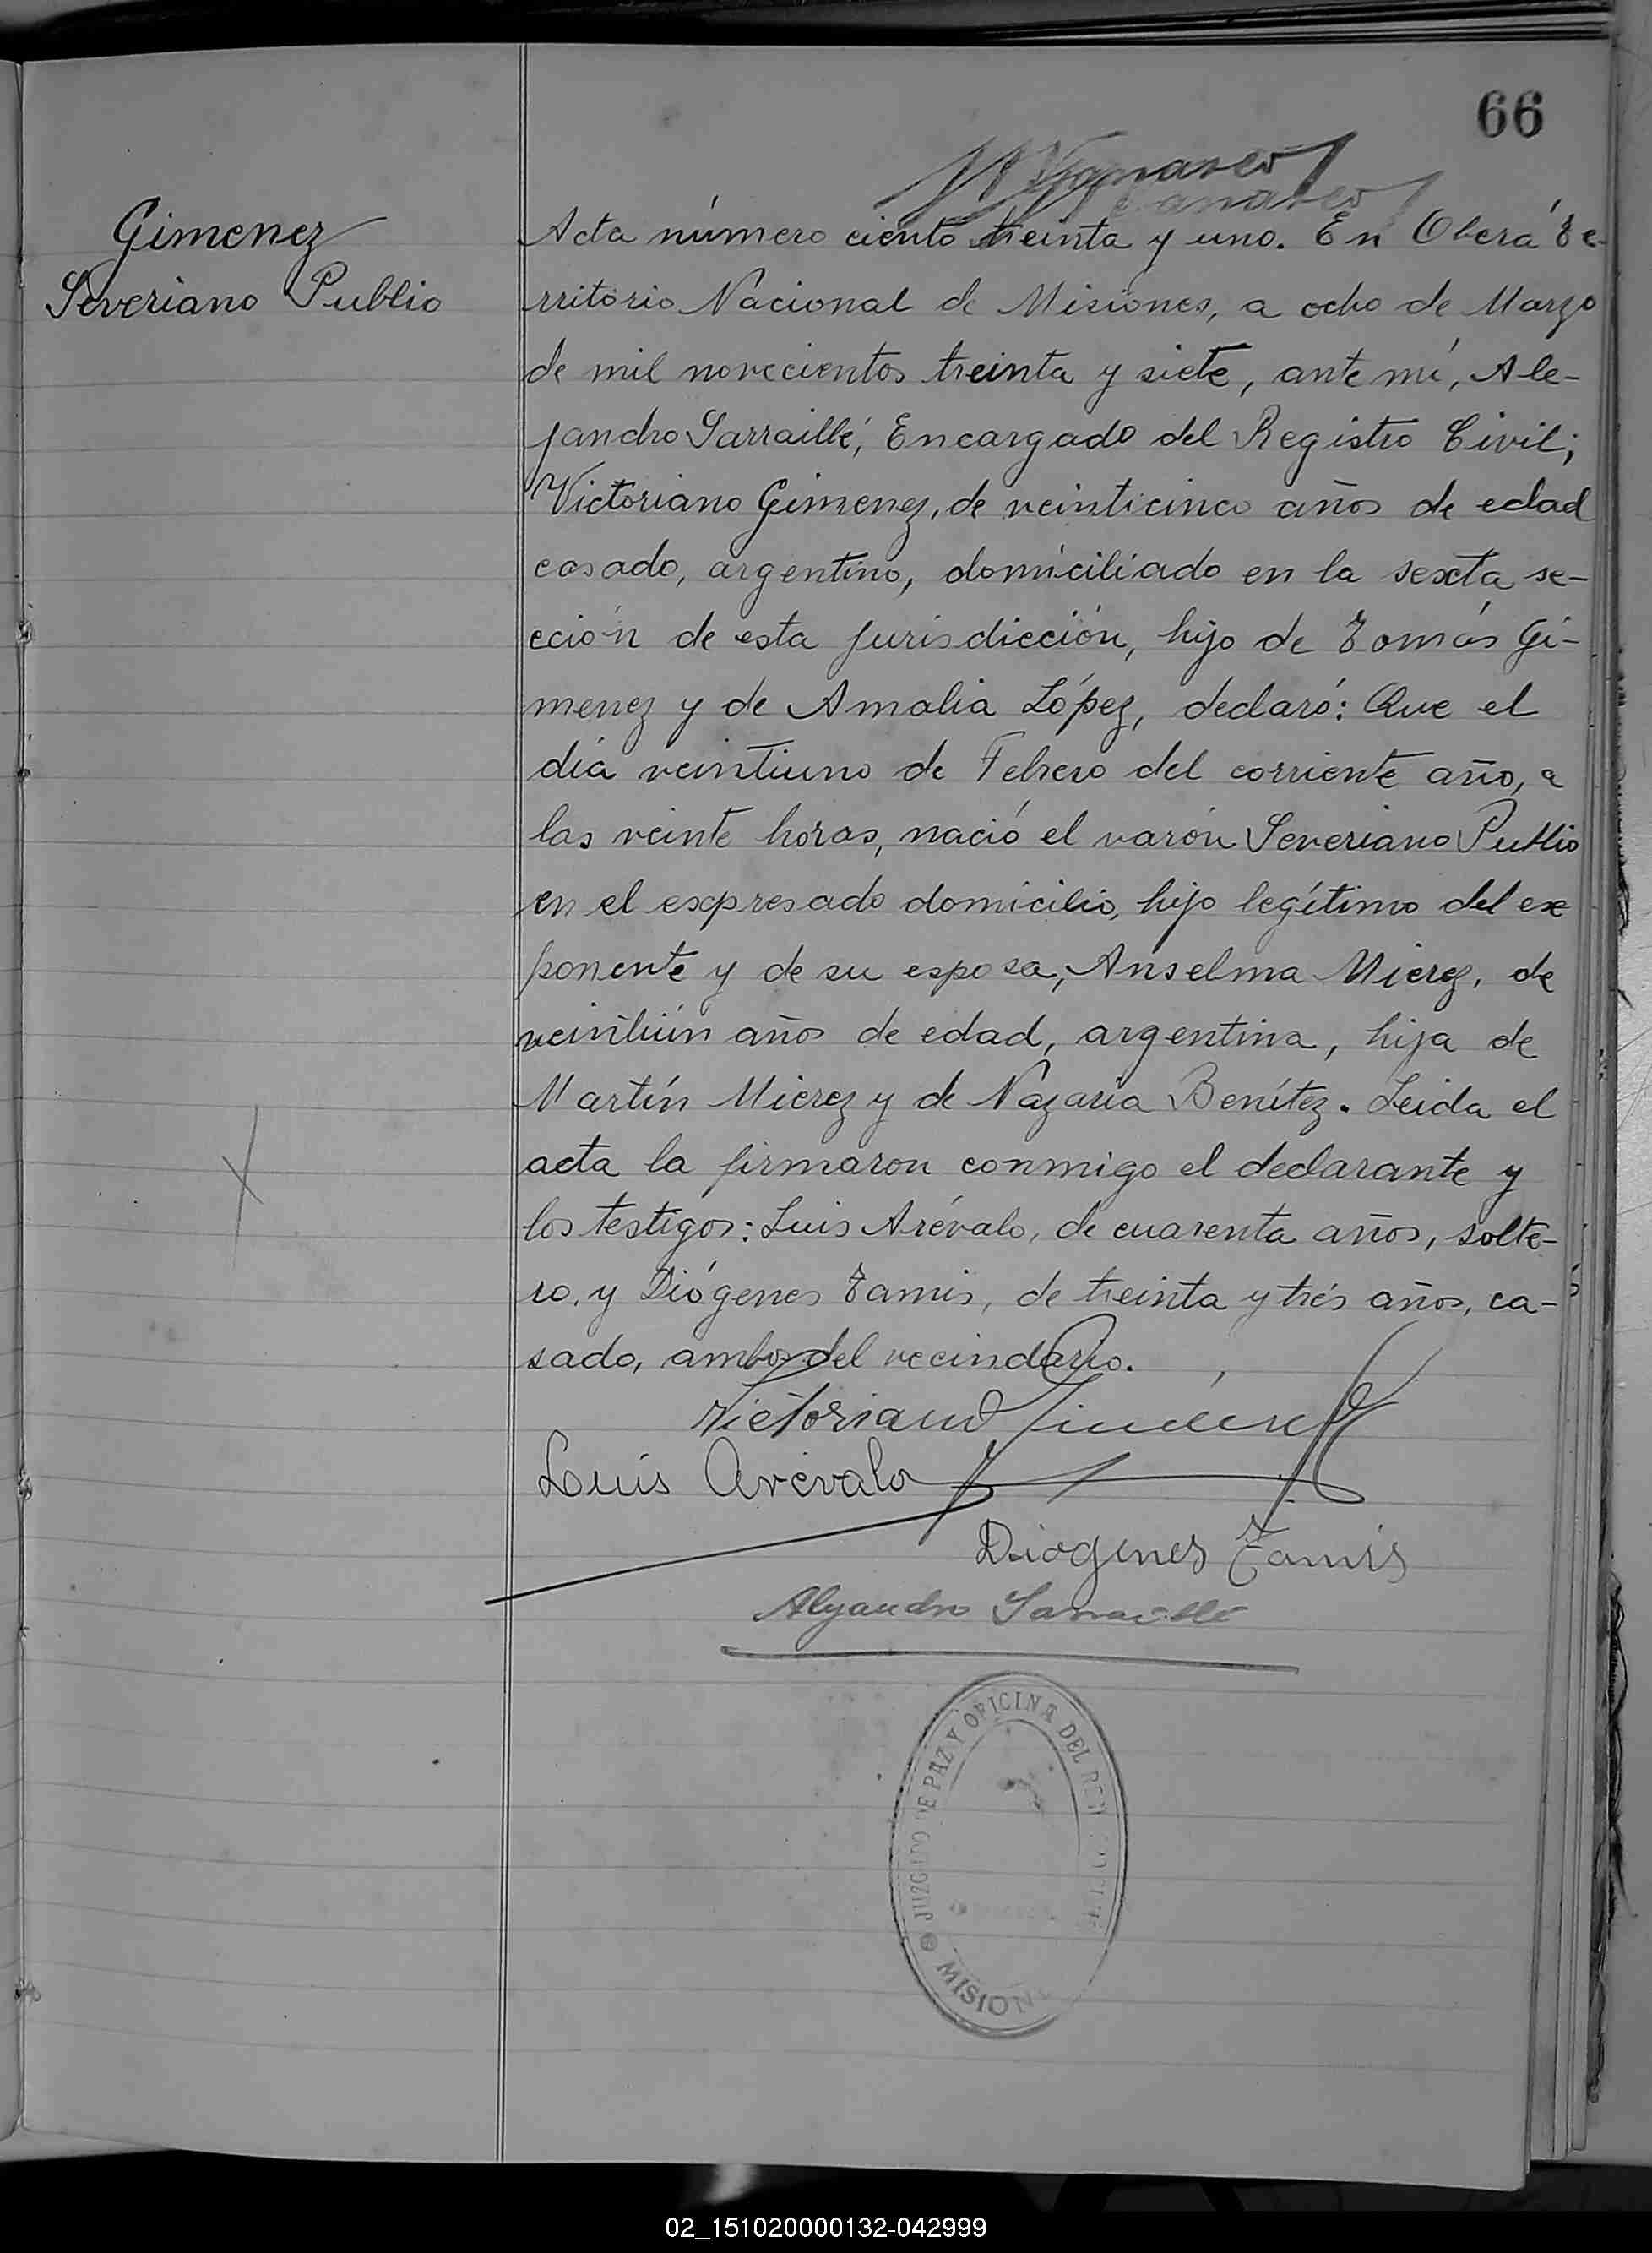 66
Gimenez
Severiano Publio
Acta número ciento treinta y uno. En Oberá Te-
rritorio Nacional de Misiones, a ocho de Marzo
de mil novecientos treinta y siete, ante mí, Ale-
jandro Sarraillé, Encargado del Registro Civil;
Victoriano Gimenez, de veinticinco años de edad
casado, argentino, domiciliado en la sexta se-
cción de esta jurisdicción, hijo de Tomás Gi-
menez y de Amalia López, declaró: Que el
día veintiuno de Febrero del corriente año, a
las veinte horas, nació el varón Severiano Publio
en el expresado domicilio, hijo legítimo del ex
ponente y de su esposa, Anselma Mierez, de
veintiún años de edad, argentina, hija de
Martín Mierez y de Nazaria Benítez. Leida el
acta la firmaron conmigo el declarante y
los testigos: Luis Arévalo, de cuarenta años, solte-
ro, y Diógenes Tamis, de treinta y trés años, ca-
sado, ambos del vecindario.
Victoriano Jimenez
Luis Arévalo
Diogenes Tamis
Alejandro Sarraillé
JUZGADO DE PAZ Y OFICINA DEL
MISION
02_151020000132-042999